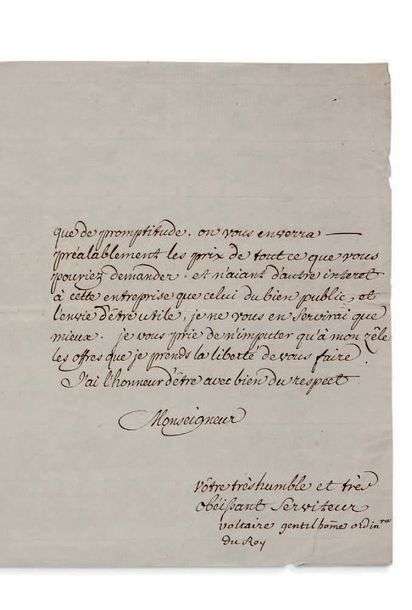 que de promptitude. on vous enverra —
préalablement les prix de tout ce que vous
pouriez demander. et n'aiant d'autre interet
à cette entreprise que celui du bien public, et
l'envie d'être utile, je ne vous en servirai que
mieux. je vous prie de n'imputer qu'à mon zêle
les offres que je prends la liberté de vous faire.
J'ai l'honneur d'être avec bien du respect
Monseigneur
Vôtre très humble et très
obéissant serviteur
voltaire gentilhõme ordin.re
du Roy